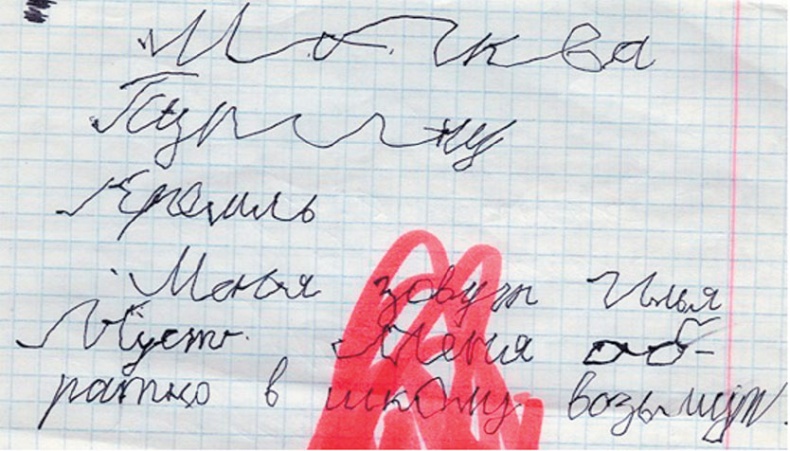 Москва
Путину
Кремль
Менья зовут Илья
Пусть меня об-
ратно в школу возьмут.